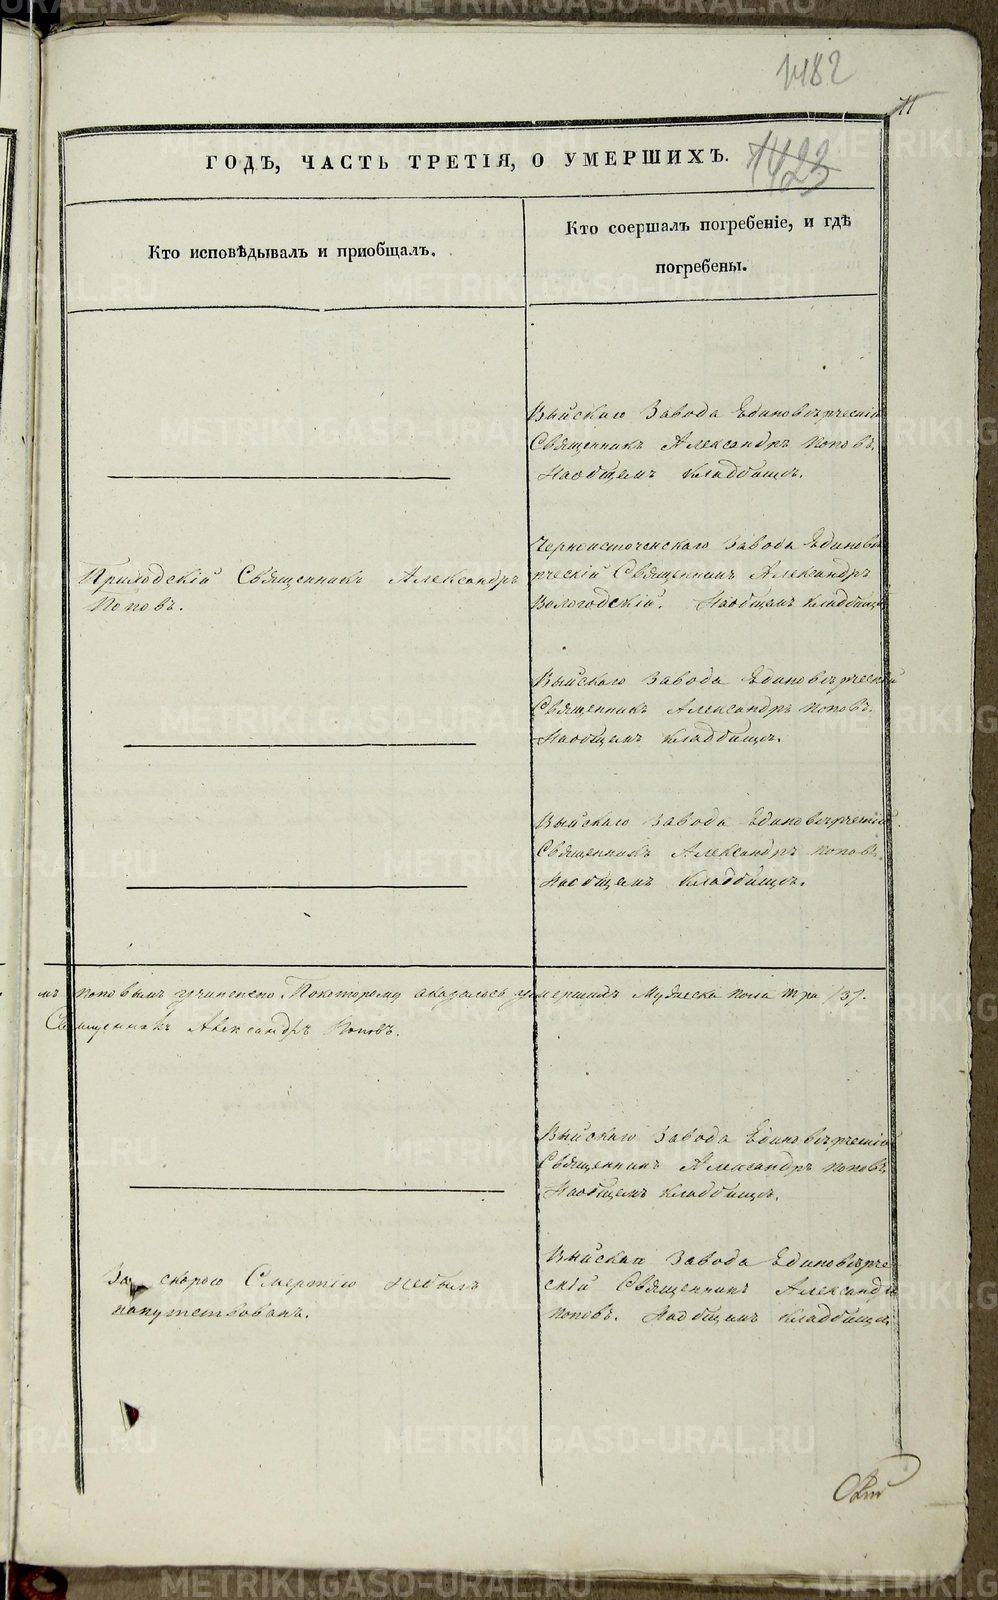 1482
11
ГОДѢ, ЧАСТЬ ТРЕТІЯ, О УМЕРШИХЪ.
1423
Кто исповѣдывалъ и приобщалъ.
Кто соершалъ погребеніе, и гдѣ
погребены.
Выйскаго Завода Единовѣрческій
Священникъ Александръ Поповъ.
Наобщемъ Кладбищѣ.
Приходскій Священникъ Александръ
Поповъ.
Черноисточенскаго Завода Единовѣ
рческій Священникъ Александръ
Вологодскій. Наобщемъ Кладбищѣ
Выйскаго Завода Единовѣрческій
Священникъ Александръ Поповъ.
Наобщемъ Кладбищѣ.
Выйскаго Завода Единовѣрческій
Священникъ Александръ Поповъ.
Наобщемъ Кладбищѣ.
мъ Поповымъ учинено. Покоторому оказалось умершихъ Мужеска пола три /3/.
Священникъ Александръ Поповъ.
Выйскаго Завода Единовѣрческій
Священникъ Александръ Поповъ
Наобщемъ Кладбищѣ.
За скорою Смертію небылъ
напутствованъ.
Выйскаго Завода Единовѣрче
скій Священникъ Александръ
Поповъ. Наобщемъ Кладбищѣ
METRIKI.GASO-URAL.RU